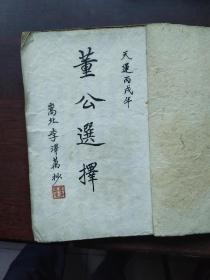 天運丙戌年
董公選擇
嵩北李澤萬抄